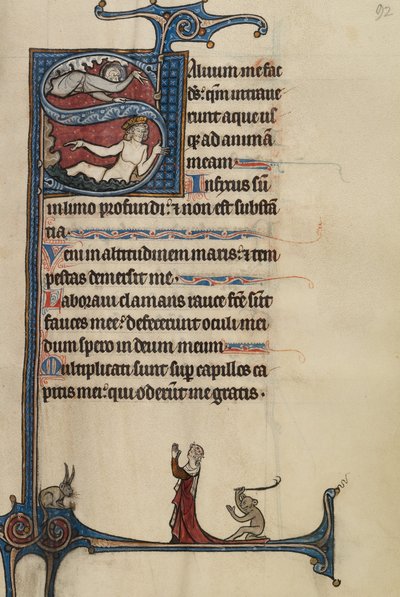 92
Salvum me fac
ds: qm intrave
runt aque us
q ad animā
meam
Infixus sū
in limo profundi: ⁊ non est substā
tia
Veni in altitudinem maris: ⁊ tem
pestas demersit me
Laboravi clamans rauce fc̄e sūt
fauces mee: defecerunt oculi mei
dum spero in deum meum
Multiplicati sunt sup capillos ca
pitis mei: qui oderūt me gratis.